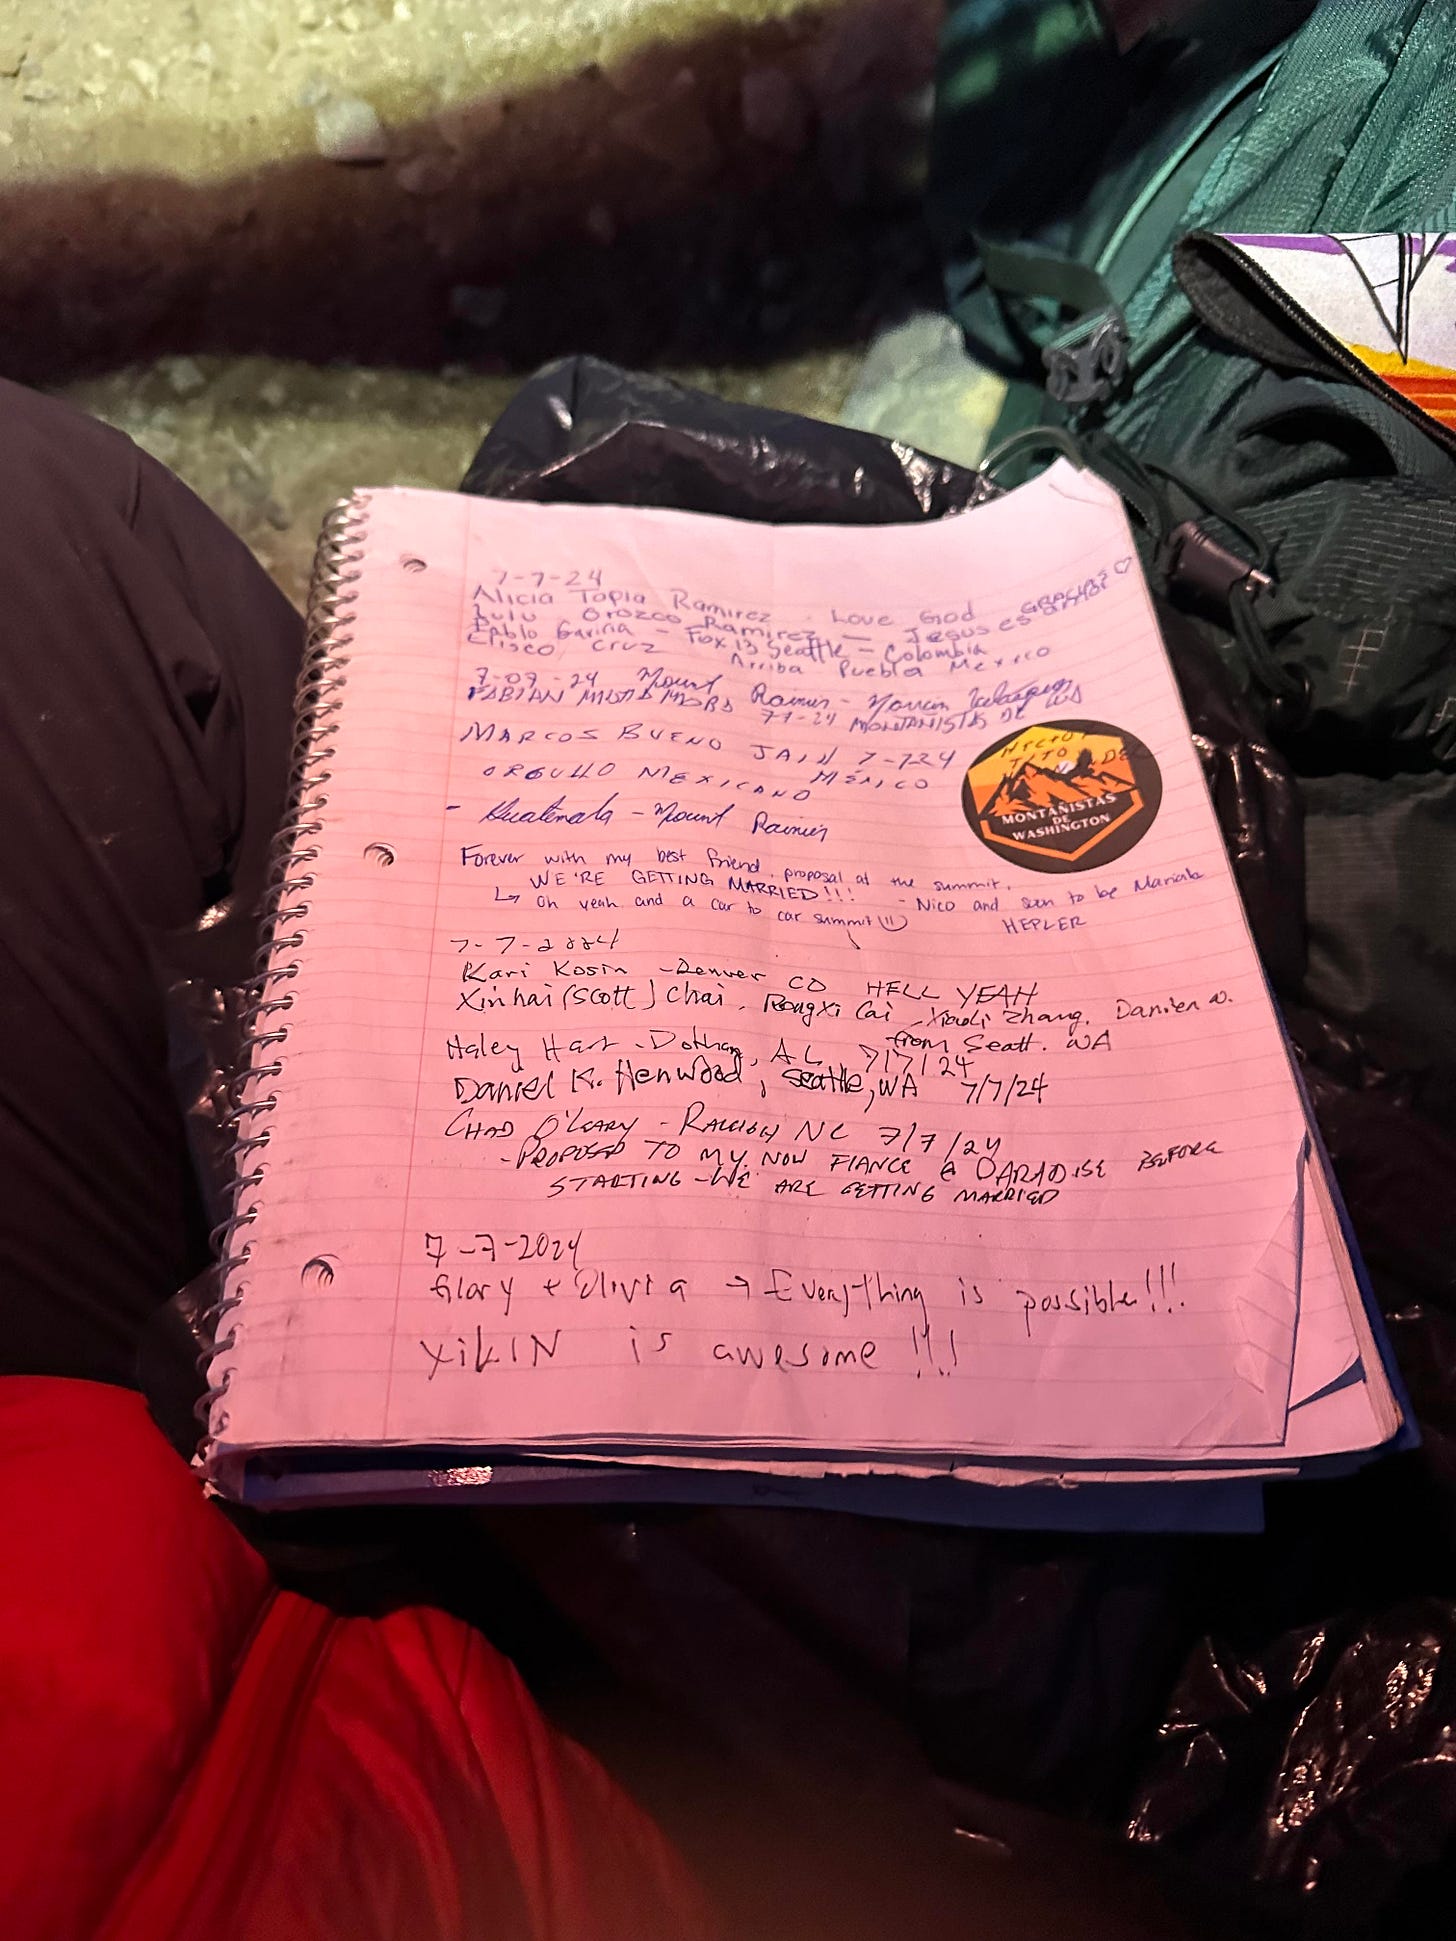 7-7-24
Alicia Tapia Ramirez. Love God
Lulu Orozco Ramirez — Jesus es amor GRACIAS ♡
Pablo Gaviria - Fox 13 Seattle - Colombia
Eliseo Cruz Arriba Puebla Mexico
7-07-24 Mount Rainier -
FABIAN 7-7-24 MONTANISTAS DE WA
MARCOS BUENO JAIN 7-724
ORGULLO MEXICANO MÉXICO
- Guatemala - Mount Rainier
TITO
MONTAÑISTAS
DE
WASHINGTON
Forever with my best friend, proposal at the summit.
WE'RE GETTING MARRIED!!! - Nico and soon to be Mariah
↳ Oh yeah and a car to car summit HEPLER
7-7-2024
Kari Kosin - Denver CO HELL YEAH
Xinhai (Scott) Chai, Rongxi Cai, Xiaoli Zhang, Damien W.
from Seatt. WA
Haley Hart - Dothan, AL 7/7/24
Daniel K. Henwood, Seattle, WA 7/7/24
CHAD O'LEARY - RALEIGH NC 7/7/24
- PROPOSED TO MY NOW FIANCE @ PARADISE BEFORE
STARTING - WE ARE GETTING MARRIED
7-7-2024
Glory + Olivia → Everything is possible!!!
YiKIN is awesome !!!